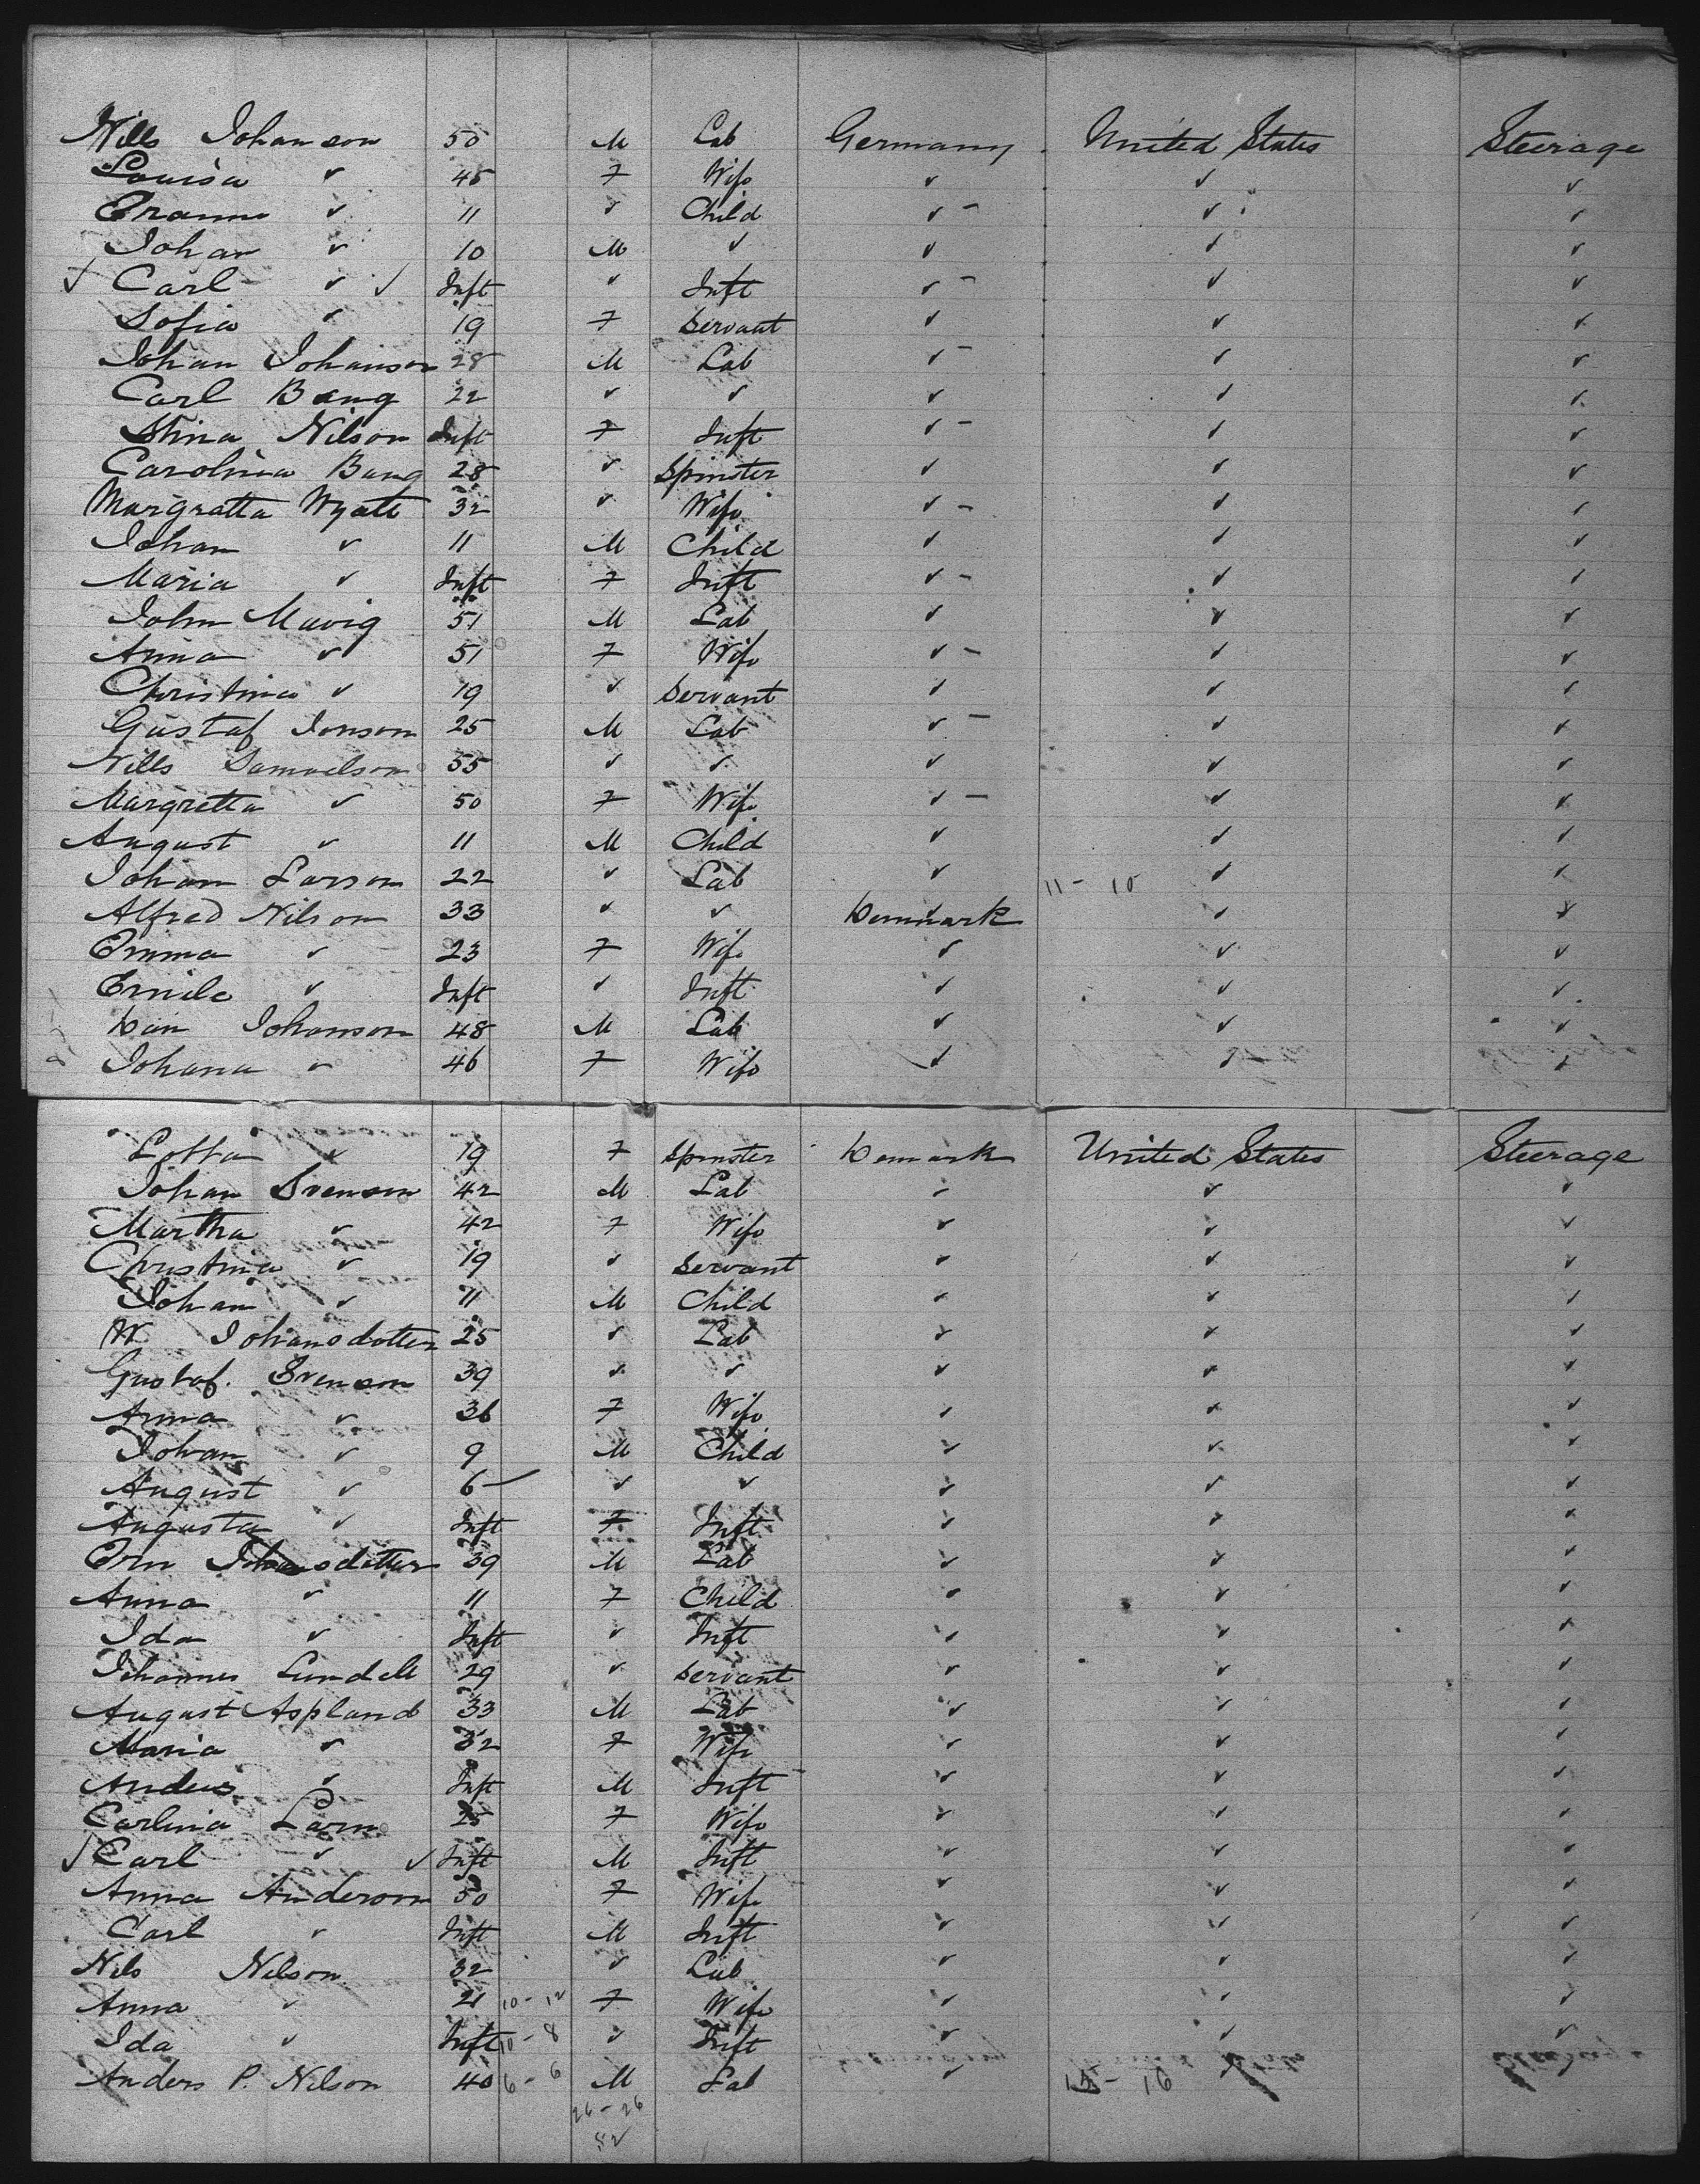 Nills Johanson 50 M Lab Germany United States Steerage
Louisa ✓ 45 F Wife ✓ ✓ ✓
✓ 11 ✓ Child ✓ - ✓ ✓
Johan ✓ 10 M ✓ ✓ ✓ ✓
✓ Carl ✓ ✓ Inft ✓ Inft ✓ - ✓ ✓
Sofia ✓ 19 F Servant ✓ ✓ ✓
Johan Johanson 28 M Lab ✓ - ✓ ✓
Carl Bang 22 ✓ ✓ ✓ ✓ ✓
Stina Nilson Inft F Inft ✓ - ✓ ✓
Carolina Bang 28 ✓ Spinster ✓ ✓ ✓
Margratta Wyatt 32 ✓ Wife ✓ - ✓ ✓
Johan ✓ 11 M Child ✓ ✓ ✓
Maria ✓ Inft F Inft ✓ - ✓ ✓
John Mavig 51 M Lab ✓ ✓ ✓
Anna ✓ 51 F Wife ✓ - ✓ ✓
Christina ✓ 19 ✓ Servant ✓ ✓ ✓
Gustaf Jonson 25 M Lab ✓ - ✓ ✓
Nills Samuelson 55 ✓ ✓ ✓ ✓ ✓
Margretta ✓ 50 F Wife ✓ - ✓ ✓
August ✓ 11 M Child ✓ ✓ ✓
Johan Larson 22 ✓ Lab ✓ 11 - 15 ✓ ✓
Alfred Nilson 33 ✓ ✓ Denmark ✓ ✓
Emma ✓ 23 F Wife ✓ ✓ ✓
Emile ✓ Inft ✓ Inft ✓ ✓ ✓
Johanson 48 M Lab ✓ ✓ ✓
Johana ✓ 46 F Wife ✓ ✓ ✓
Lotta ✓ 19 F Spinster Demark United States Steerage
Johan Svenson 42 M Lab ✓ ✓ ✓
Martha ✓ 42 F Wife ✓ ✓ ✓
Christina ✓ 19 ✓ Servant ✓ ✓ ✓
Johan ✓ 11 M Child ✓ ✓ ✓
W Johansdotter 25 ✓ Lab ✓ ✓ ✓
Gustaf. Svenson 39 ✓ ✓ ✓ ✓ ✓
Anna ✓ 36 F Wife ✓ ✓ ✓
Johan ✓ 9 M Child ✓ ✓ ✓
August ✓ 6 ✓ ✓ ✓ ✓ ✓
Augusta ✓ Inft F Inft ✓ ✓ ✓
Johansdotter 39 M Lab ✓ ✓ ✓
Anna ✓ 11 F Child ✓ ✓ ✓
Ida ✓ Inft ✓ Inft ✓ ✓ ✓
Johannes Lundell 29 ✓ Servant ✓ ✓ ✓
August Aspland 33 M Lab ✓ ✓ ✓
Maria ✓ 32 F Wife ✓ ✓ ✓
Anders ✓ Inft M Inft ✓ ✓ ✓
Carlina Larn 25 F Wife ✓ ✓ ✓
✓ Carl ✓ ✓ Inft M Inft ✓ ✓ ✓
Anna Anderson 50 F Wife ✓ ✓ ✓
Carl ✓ Inft M Inft ✓ ✓ ✓
Nils Nilson 32 ✓ Lab ✓ ✓ ✓
Anna ✓ 21 10 - 12 F Wife ✓ ✓ ✓
Ida ✓ Inft 10 - 8 ✓ Inft ✓ ✓ ✓
Anders P. Nilson 40 6 - 6 M Lab ✓ 15 - 16 ✓ ✓
26 - 26
52